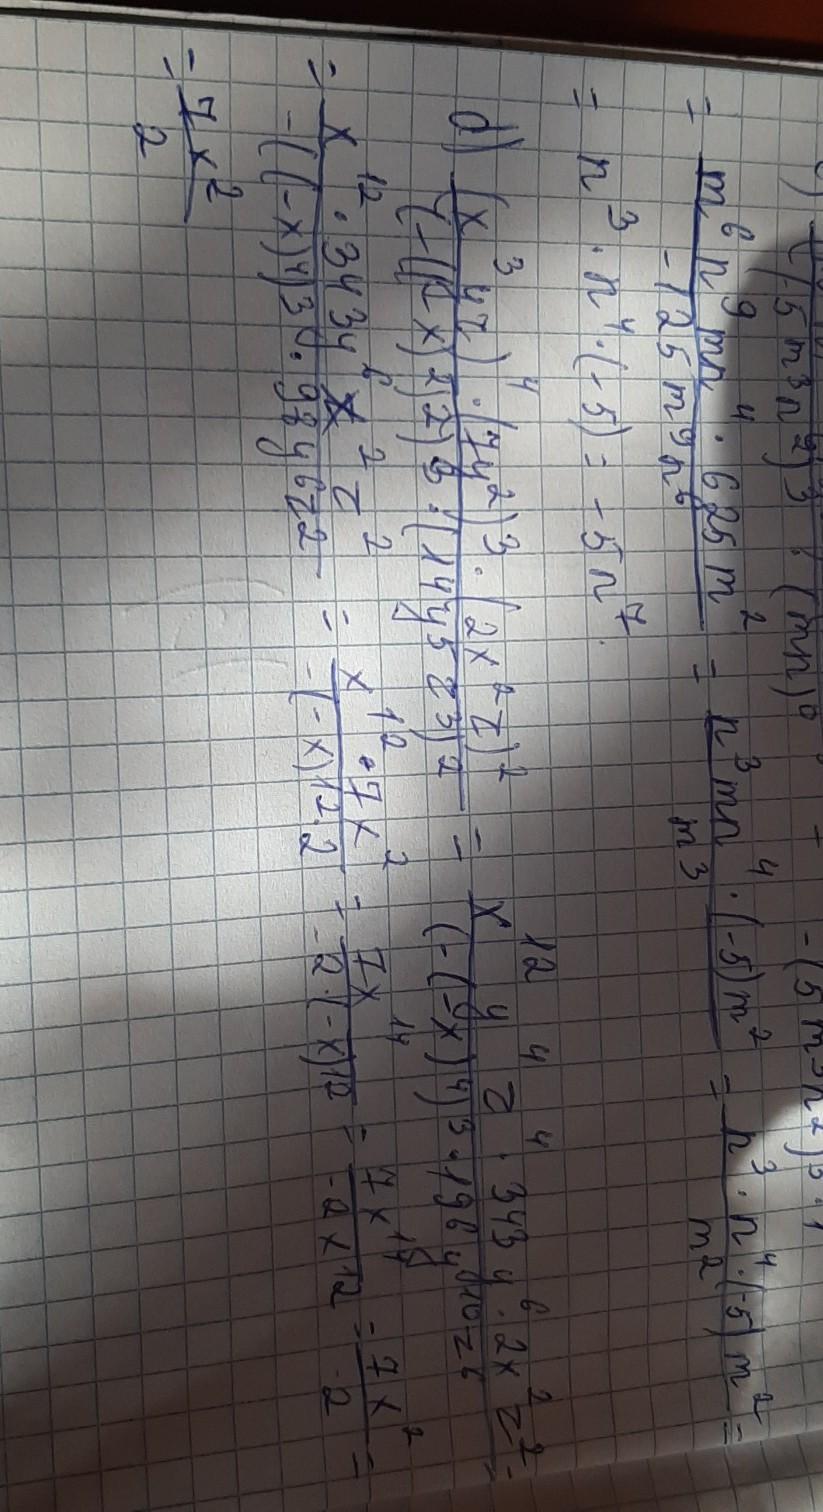 (-5m³n²)³ · (mn)⁰ -(5m³n²)³ · 1
= m⁶n⁹mn⁴ · 625m² / -125m⁹n⁶ = n³mn⁴ · (-5)m² / m³ = n³ · n⁴ · (-5)m² / m² =
= n³ · n⁴ · (-5) = -5n⁷.
d) (x³yz)⁴ · (7y²)³ · (2x z)² / (-((-x)²)²)³ · (14y⁵z³)² = x¹² y⁴ z⁴ · 343y⁶ · 2x² z² / (-(-x)⁴)³ · 196y¹⁰z⁶ =
= x¹² · 343y⁶ x² z² / -((-x)⁴)³ · 98y⁶z² = x¹² · 7x² / -(-x)¹² · 2 = 7x¹⁴ / -2 · (-x)¹² = 7x¹⁴ / -2x¹² = 7x² / -2 =
= - 7x² / 2